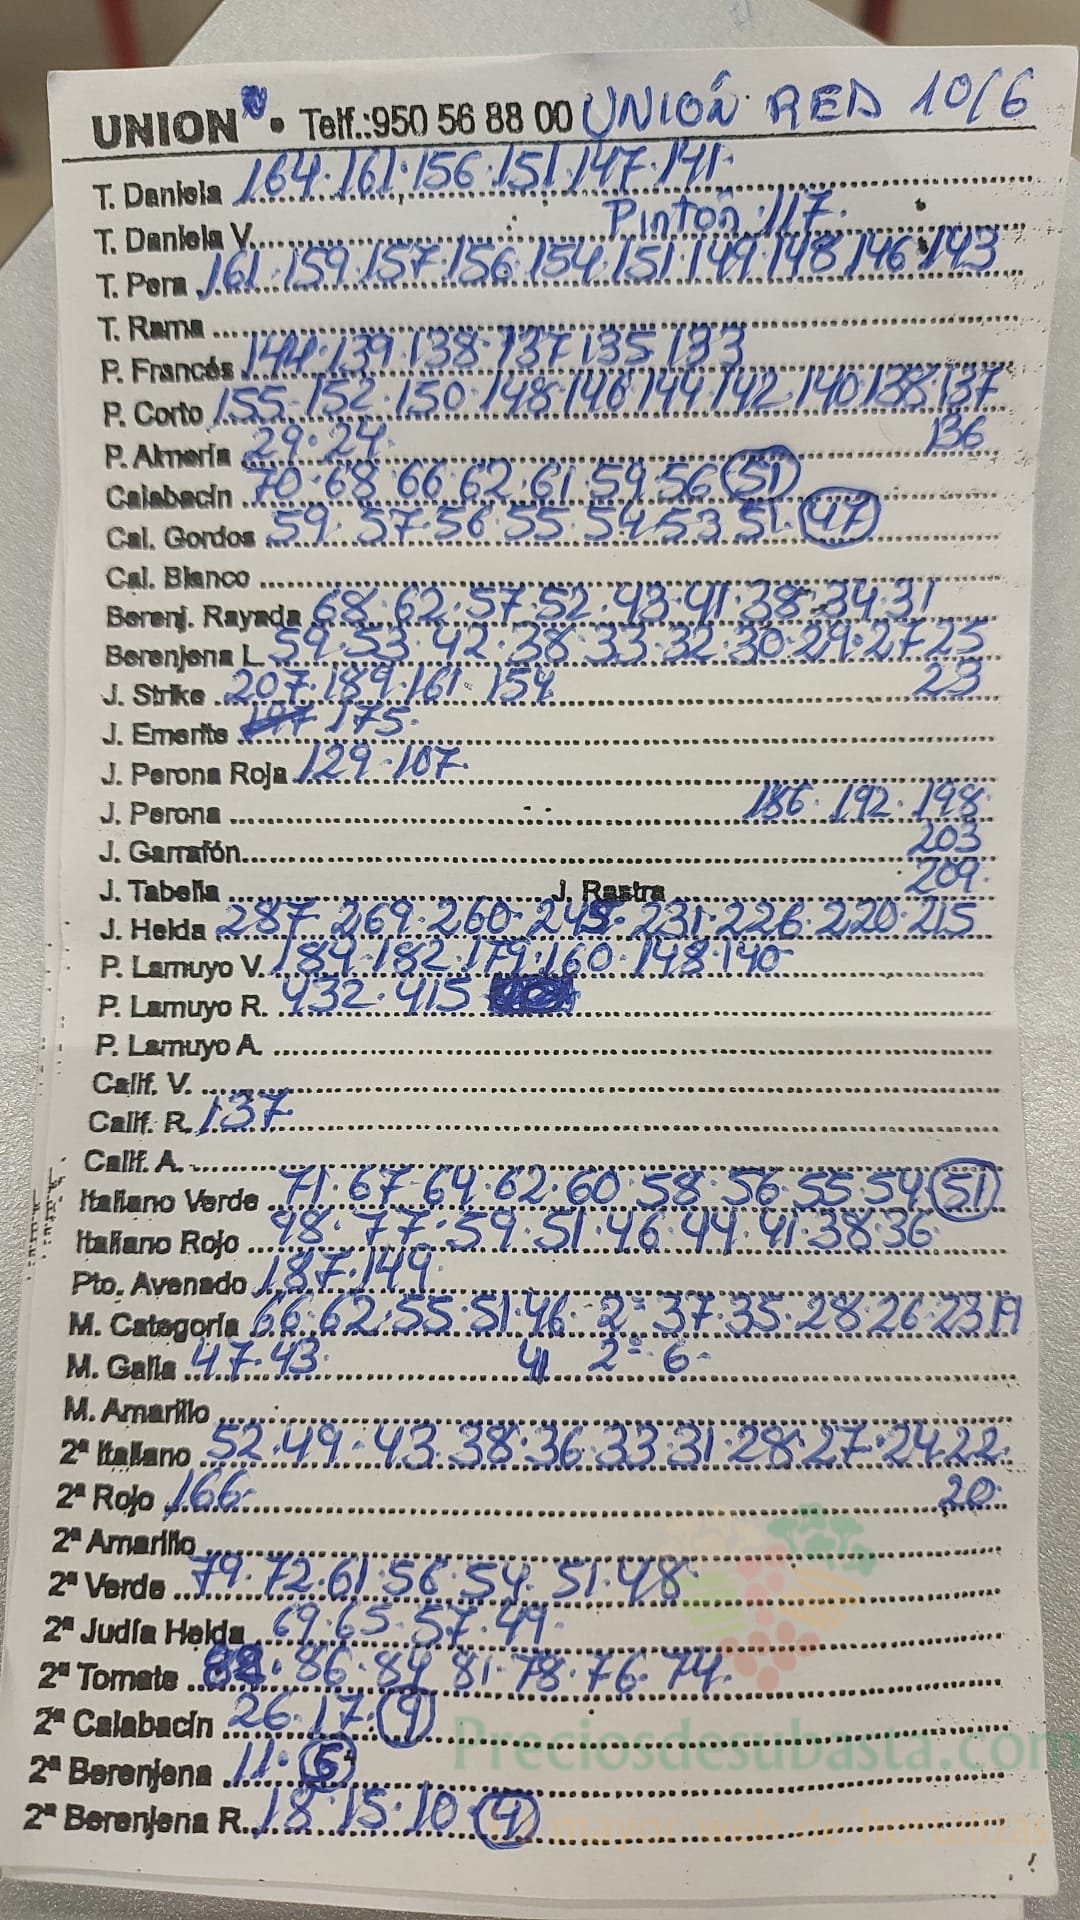 UNION • Telf.:950 56 88 00 UNIÓN RED 10/6
T. Daniela 164.161.156.151.147.141.
T. Daniela V. Pintón.117.
T. Pera 161.159.157.156.154.151.149.148.146.143
T. Rama
P. Francés 144.139.138.137.135.133
P. Corto 155.152.150.148.146.144.142.140.138.137
136
P. Almería 29.24.
Calabacín 70.68.66.62.61.59.56 51
Cal. Gordos 59.57.56.55.54.53.51.47
Cal. Blanco
Berenj. Rayada 68.62.57.52.43.41.38.34.31
Berenjena L. 59.53.42.38.33.32.30.29.27.25
23
J. Strike 207.189.161.154
J. Emerite 175.
J. Perona Roja 129.107.
J. Perona 186.192.198.
J. Garrafón 203
J. Tabella J. Rastra 209.
J. Helda 287.269.260.245.231.226.220.215
P. Lamuyo V. 184.182.179.160.148.140
P. Lamuyo R. 432.415
P. Lamuyo A.
Calif. V.
Calif. R. 137
Calif. A.
Italiano Verde 71.67.64.62.60.58.56.55.54 51
Italiano Rojo 98.77.59.51.46.44.41.38.36
Pto. Avenado 187.149.
M. Categoría 66.62.55.51.46 2ª 37.35.28.26.23
M. Galia 47.43. 41 2ª 6-
M. Amarillo
2ª Italiano 52.49.43.38.36.33.31.28.27.24.22.
20.
2ª Rojo 166.
2ª Amarillo
2ª Verde 79.72.61.56.54.51.48.
2ª Judía Helda 69.65.57.49.
2ª Tomate 86.84.81.78.76.74.
2ª Calabacín 26.17.9
2ª Berenjena 11.6
2ª Berenjena R. 18.15.10 4
Preciosdesubasta.com
mayor web de hortalizas